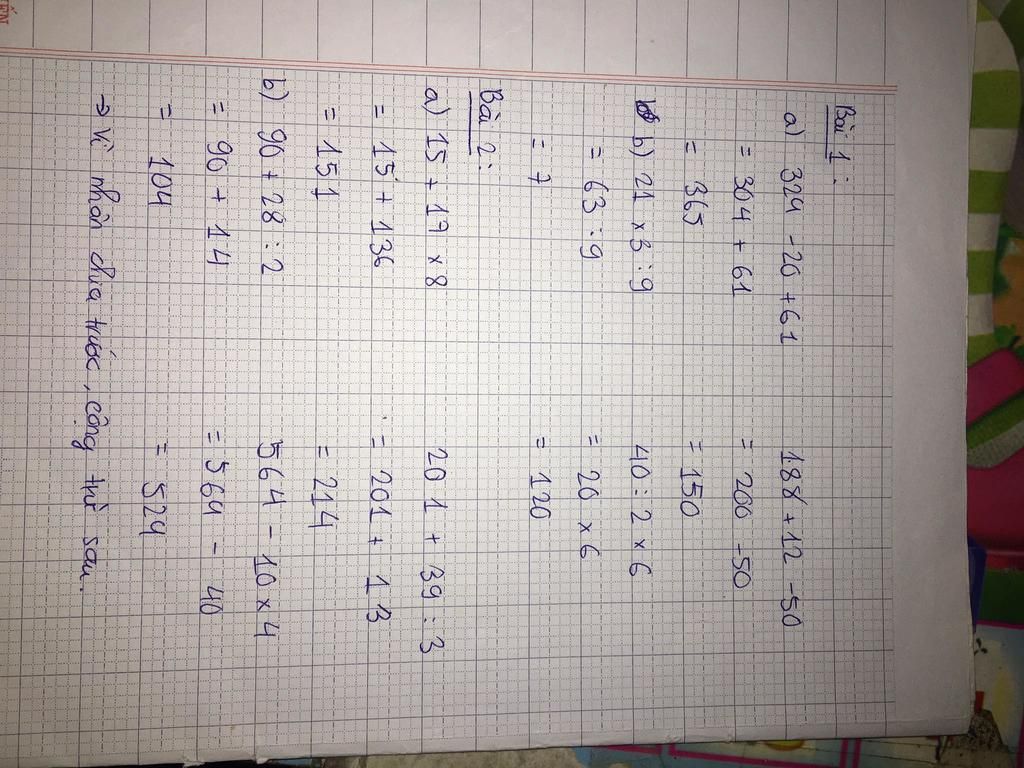 Bài 1:
a) 324 - 20 + 61 188 + 12 - 50
= 304 + 61 = 200 - 50
= 365 = 150
b) 21 × 3 : 9 40 : 2 × 6
= 63 : 9 = 20 × 6
= 7 = 120
Bài 2:
a) 15 + 17 × 8 201 + 39 : 3
= 15 + 136 = 201 + 13
= 151 = 214
b) 90 + 28 : 2 564 - 10 × 4
= 90 + 14 = 564 - 40
= 104 = 524
→ Vì nhân chia trước, cộng trừ sau.